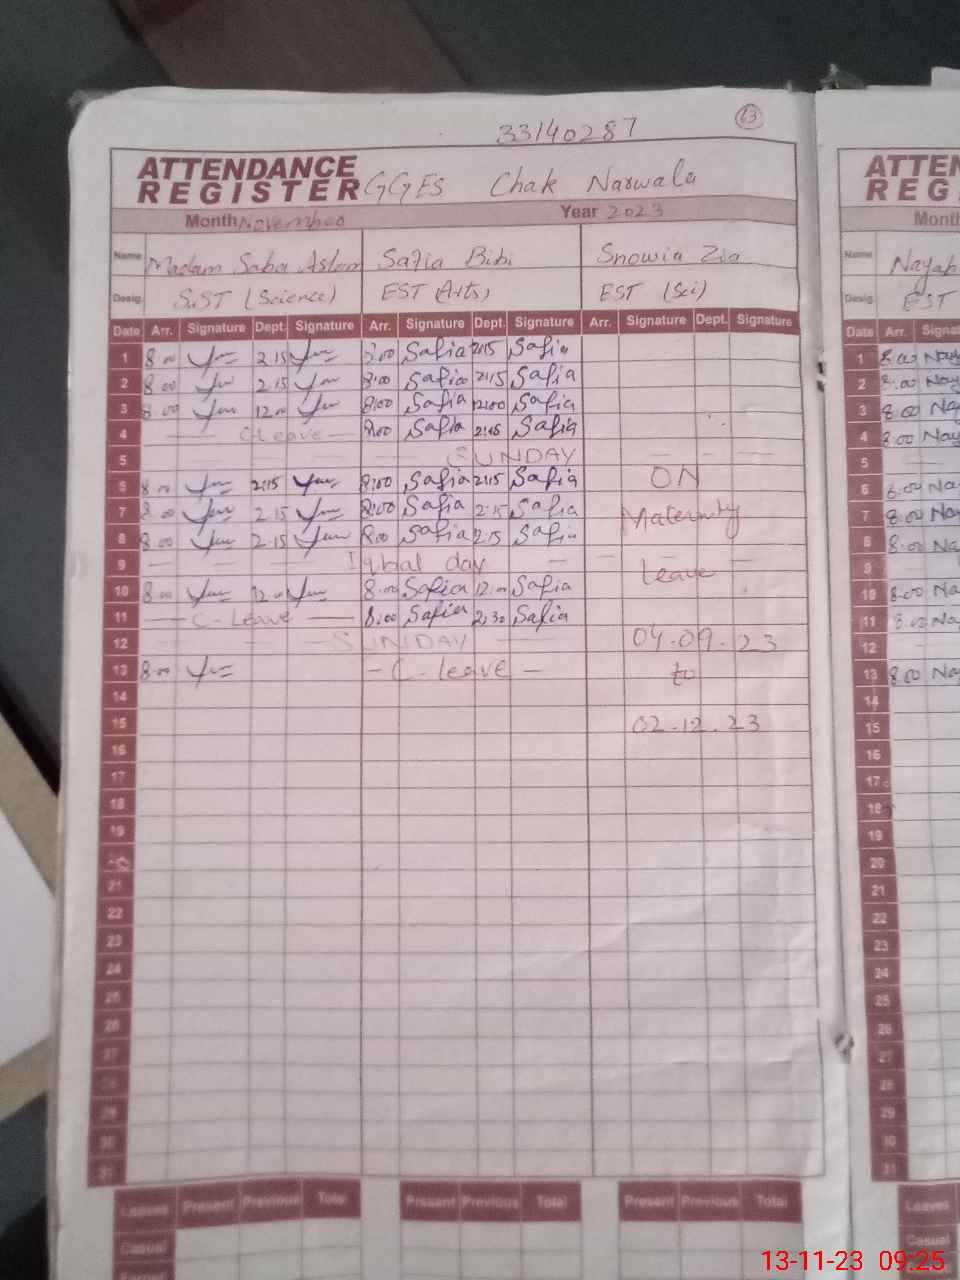 33140287 63
ATTENDANCE REGISTER GGES Chak Narwala
Month November Year 2023
Name Madam Saba Aslam Safia Bibi Snowia Zia
Desig. S.ST (Science) EST (Arts) EST (Sci)
Date Arr. Signature Dept. Signature Arr. Signature Dept. Signature Arr. Signature Dept. Signature
1 8.00 2.15 8.00 Safia 2:15 Safia
2 8.00 2.15 8:00 Safia 2:15 Safia
3 8.00 12.00 8:00 Safia 12:00 Safia
4 — C Leave — 8:00 Safia 2:15 Safia
5 — — SUNDAY — — —
6 8.00 2:15 8:00 Safia 2:15 Safia ON
7 8.00 2.15 8:00 Safia 2:15 Safia Maternity
8 8.00 2.15 8:00 Safia 2:15 Safia
9 — — — Iqbal day — — — leave
10 8.00 12.00 8:00 Safia 12:00 Safia
11 — C-Leave — 8:00 Safia 2:30 Safia
12 — — SUNDAY — — 04-09.23
13 8.00 — C-leave — to
14
15 02-12.23
16
17
18
19
20
21
22
23
24
25
26
27
28
29
30
31
Leaves Present Previous Total Present Previous Total Present Previous Total
Casual
ATTEN
REG
Month
Name Nayab
Desig. EST
Date Arr. Signat
1 8.00 Nay
2 8.00 Nay
3 8.00 Na
4 8.00 Nay
5
6 8.00 Na
7 8.00 Na
8 8.00 Na
9
10 8.00 Na
11 8.00 Na
12
13 8.00 Na
14
15
16
17
18
19
20
21
22
23
24
25
26
27
28
29
30
31
Leaves Pres
Casual
13-11-23 09:25